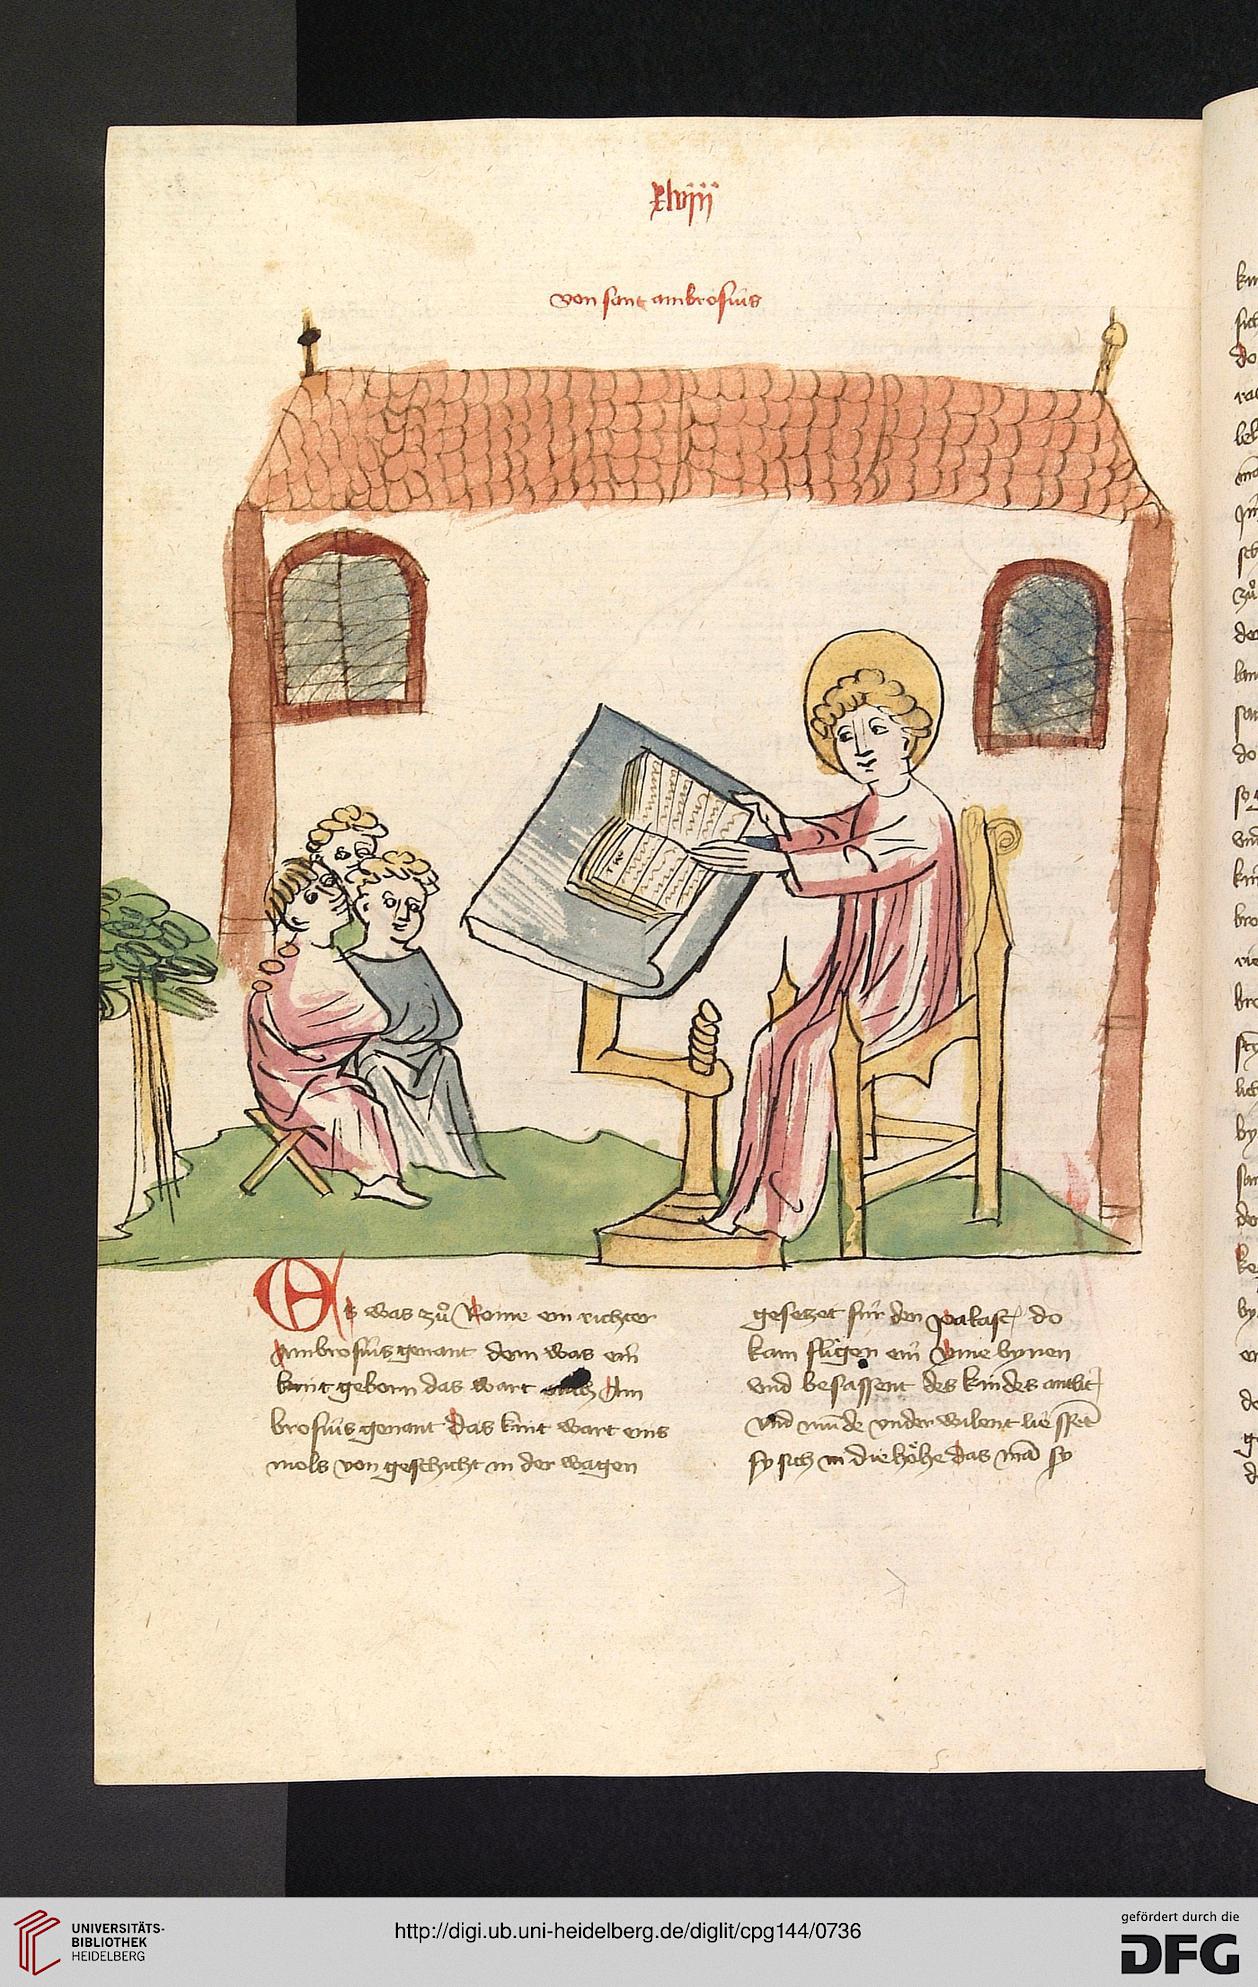 xlviiii
von sant ambrosius
Es was zů Rome ein richter
Ambrosius genant dem was ein
kint geborn das wart ouch Am
brosius genant das kint wart eins
mols von geschicht in der wagen
gesetzet für den palast do
kam flügen ein yme bynen
vnd besassent des kindes antlit
vnd munde vnder wilent liessent
sy sich in die höhe das man sy
UNIVERSITÄTS-
BIBLIOTHEK
HEIDELBERG
http://digi.ub.uni-heidelberg.de/diglit/cpg144/0736
gefördert durch die
DFG